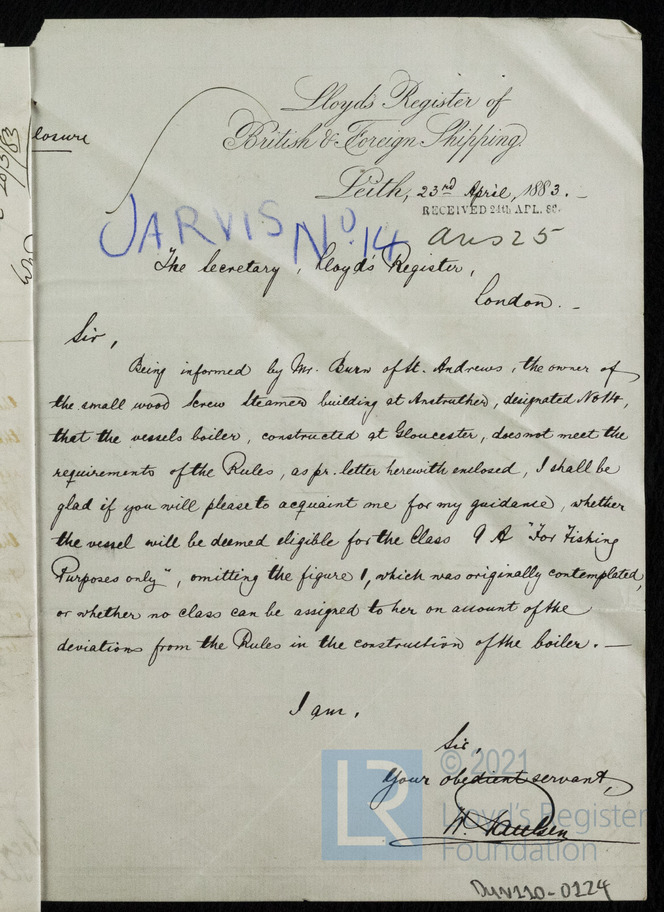 Lloyd's Register of
British & Foreign Shipping.
losure
20/3/83
Leith, 23rd April, 1883. –
RECEIVED 24th APL. 83.
ans 25
JARVIS No. 14
The Secretary, Lloyd's Register,
London. –
Sir,
Being informed by Mr. Burn of St. Andrews, the owner of
the small wood Screw Steamer building at Anstruther, designated No 14,
that the vessels boiler, constructed at Gloucester, does not meet the
requirements of the Rules, as pr. letter herewith enclosed, I shall be
glad if you will please to acquaint me for my guidance, whether
the vessel will be deemed eligible for the Class 9 A "For Fishing
Purposes only", omitting the figure 1, which was originally contemplated,
or whether no class can be assigned to her on account of the
deviations from the Rules in the construction of the boiler. –
I am,
Sir,
Your obedient servant,
W. Paulsen
LR
© 2021
Lloyd's Register
Foundation
DUV110-0124